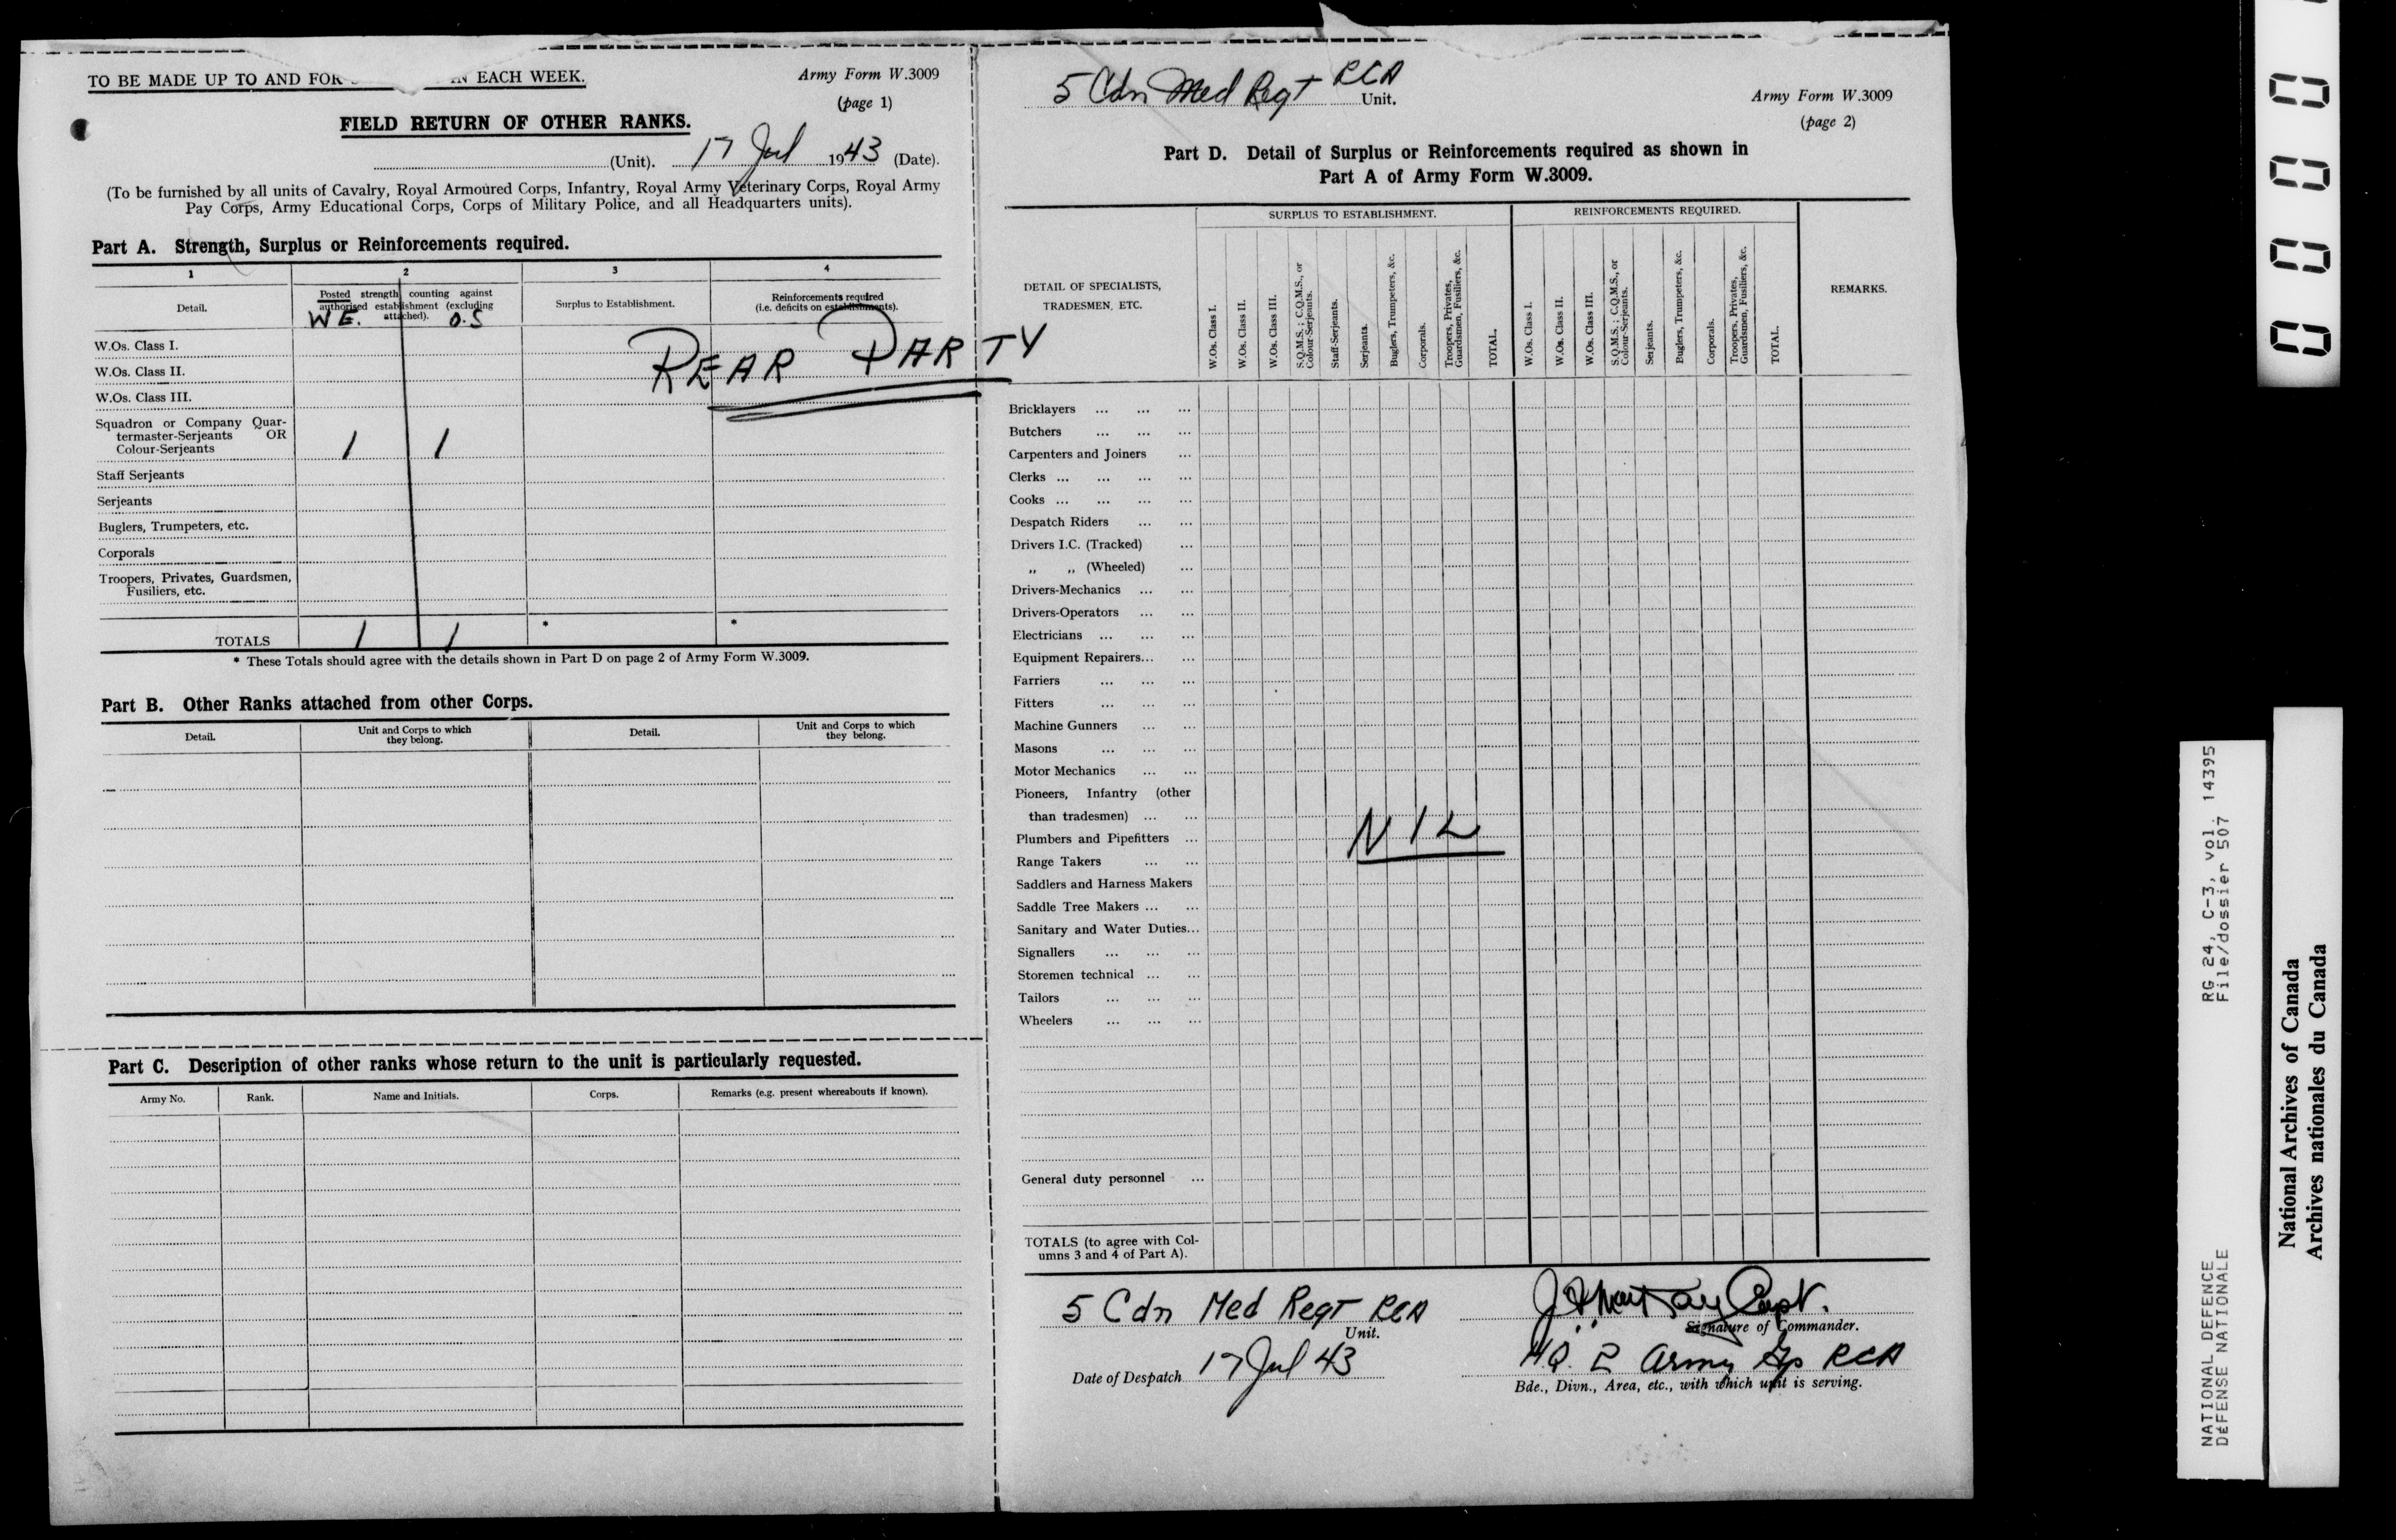 TO BE MADE UP TO AND FOR
EACH WEEK.
Army Form W.3009
(page 1)
FIELD RETURN OF OTHER RANKS.
(Unit). 17 Jul 1943 (Date).
(To be furnished by all units of Cavalry, Royal Armoured Corps, Infantry, Royal Army Veterinary Corps, Royal Army
Pay Corps, Army Educational Corps, Corps of Military Police, and all Headquarters units).
Part A. Strength, Surplus or Reinforcements required.
1 2 3 4
Detail.
Posted strength counting against
authorised establishment (excluding
attached).
W E. O.S
Surplus to Establishment.
Reinforcements required
(i.e. deficits on establishments).
W.Os. Class I.
W.Os. Class II.
W.Os. Class III.
REAR PARTY
Squadron or Company Quar-
termaster-Serjeants OR
Colour-Serjeants 1 1
Staff Serjeants
Serjeants
Buglers, Trumpeters, etc.
Corporals
Troopers, Privates, Guardsmen,
Fusiliers, etc.
TOTALS 1 1 * *
* These Totals should agree with the details shown in Part D on page 2 of Army Form W.3009.
Part B. Other Ranks attached from other Corps.
Detail.
Unit and Corps to which
they belong.
Detail.
Unit and Corps to which
they belong.
Part C. Description of other ranks whose return to the unit is particularly requested.
Army No. Rank. Name and Initials. Corps. Remarks (e.g. present whereabouts if known).
5 Cdn Med Regt RCA
Unit.
Army Form W.3009
(page 2)
Part D. Detail of Surplus or Reinforcements required as shown in
Part A of Army Form W.3009.
DETAIL OF SPECIALISTS,
TRADESMEN, ETC.
SURPLUS TO ESTABLISHMENT.
W.Os. Class I.
W.Os. Class II.
W.Os. Class III.
S.Q.M.S.; C.Q.M.S., or
Colour-Serjeants.
Staff-Serjeants.
Serjeants.
Buglers, Trumpeters, &c.
Corporals.
Troopers, Privates,
Guardsmen, Fusiliers, &c.
TOTAL.
REINFORCEMENTS REQUIRED.
W.Os. Class I.
W.Os. Class II.
W.Os. Class III.
S.Q.M.S.; C.Q.M.S., or
Colour-Serjeants.
Serjeants.
Buglers, Trumpeters, &c.
Corporals.
Troopers, Privates,
Guardsmen, Fusiliers, &c.
TOTAL.
REMARKS.
Bricklayers ... ... ...
Butchers ... ... ...
Carpenters and Joiners ...
Clerks ... ... ... ...
Cooks ... ... ... ...
Despatch Riders ... ...
Drivers I.C. (Tracked) ...
„ „ (Wheeled) ...
Drivers-Mechanics ... ...
Drivers-Operators ... ...
Electricians ... ... ...
Equipment Repairers... ...
Farriers ... ... ...
Fitters ... ... ...
Machine Gunners ... ...
Masons ... ... ...
Motor Mechanics ... ...
Pioneers, Infantry (other
than tradesmen) ... ...
Plumbers and Pipefitters ...
NIL
Range Takers ... ...
Saddlers and Harness Makers
Saddle Tree Makers ... ...
Sanitary and Water Duties...
Signallers ... ... ...
Storemen technical ... ...
Tailors ... ... ...
Wheelers ... ... ...
General duty personnel ...
TOTALS (to agree with Col-
umns 3 and 4 of Part A).
5 Cdn Med Regt RCA
Unit.
Capt.
Signature of Commander.
Date of Despatch 17 Jul 43
HQ. 2 Army Gp RCA
Bde., Divn., Area, etc., with which unit is serving.
RG 24, C-3, vol. 14395
File/dossier 507
NATIONAL DEFENCE
DÉFENSE NATIONALE
National Archives of Canada
Archives nationales du Canada
0 0 0 0